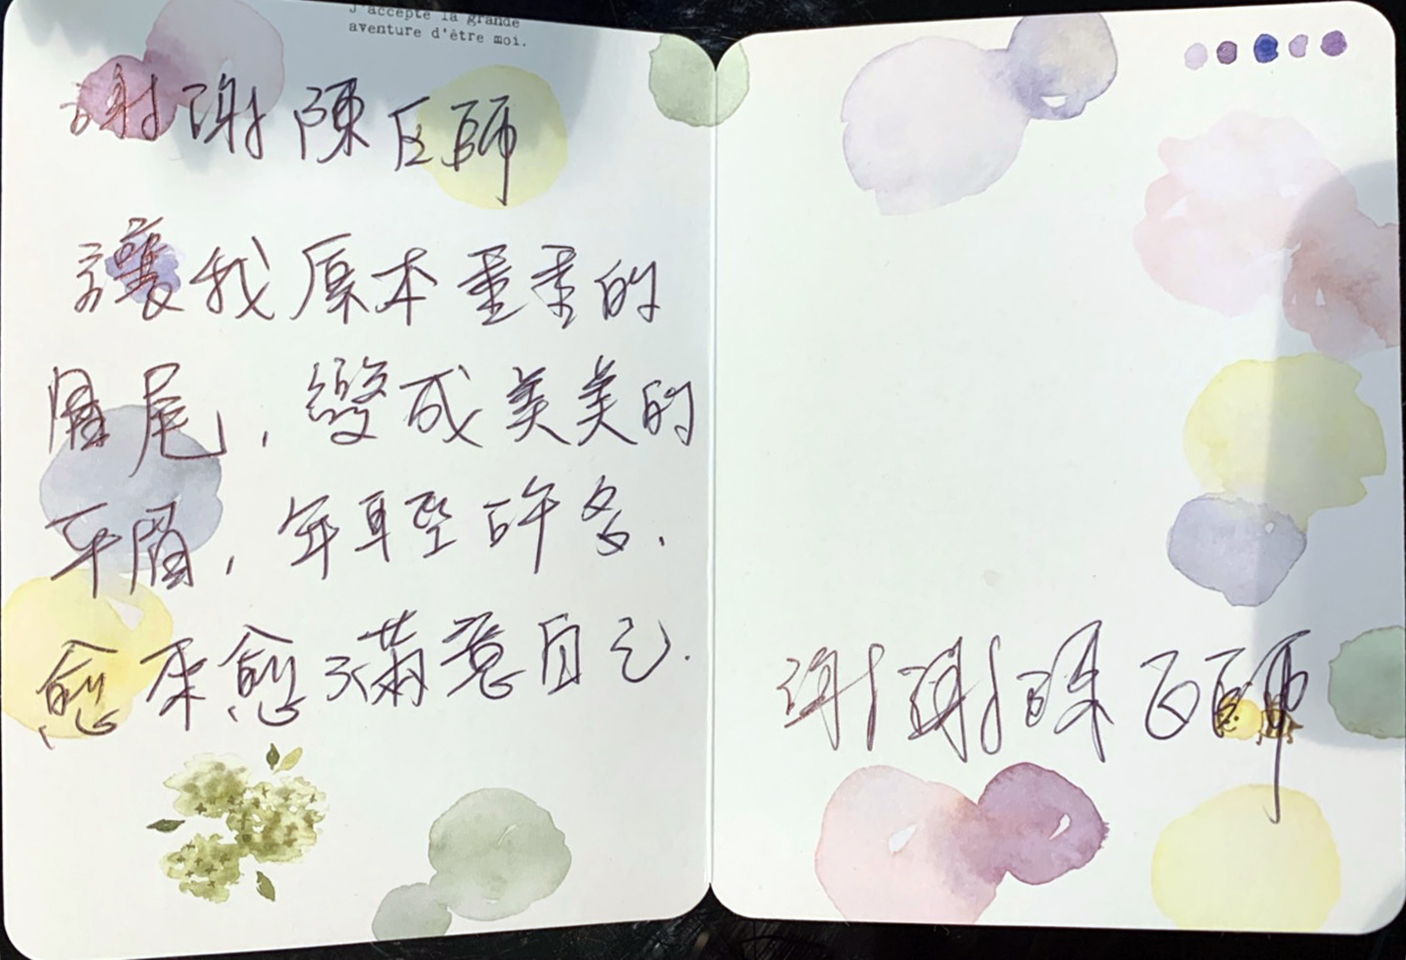 J'accepte la grande
aventure d'être moi.
謝謝陳医師
讓我原本垂垂的
眉尾，變成美美的
平眉，年輕許多.
愈來愈滿意自己.
謝謝陳医師